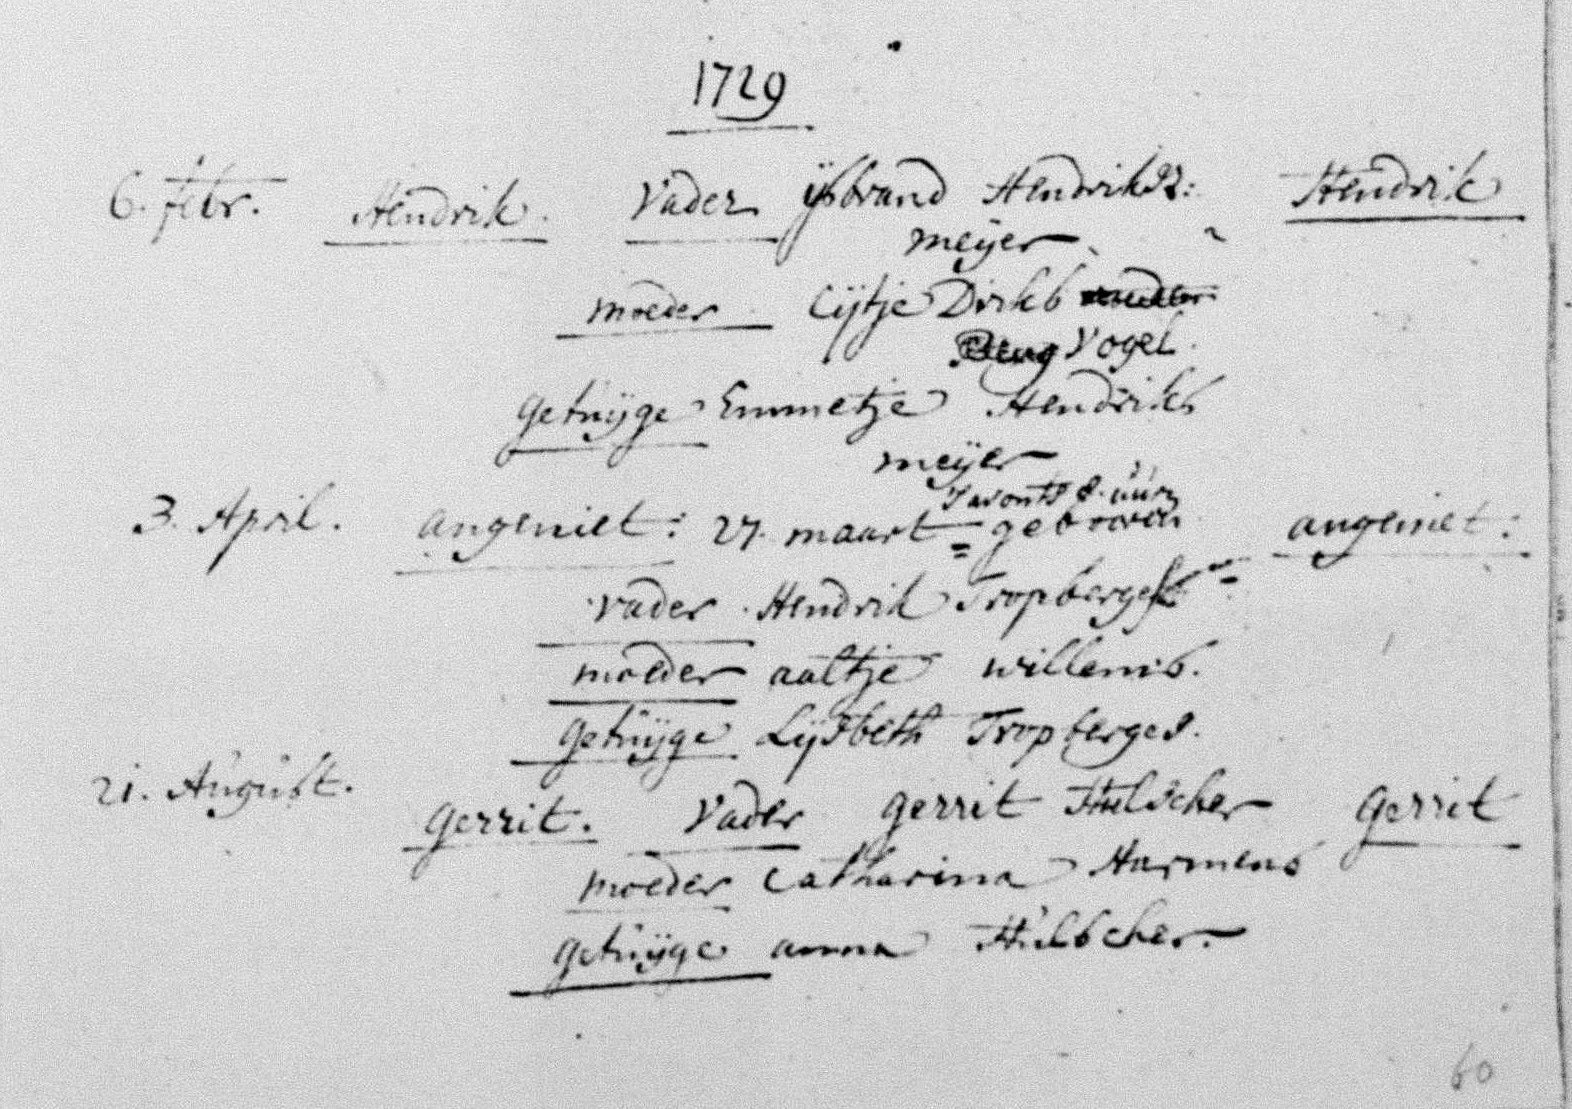 1729
6. febr. Hendrik. Vader ijsbrand Hendriksz: Hendrik
meijer
moeder Cijtje Dirks
Vogel.
getuijge Emmetje Hendriks
meijer
'savonts 8. uur
3. April. angeniet: 27. maart = gebooren angeniet:
vader Hendrik Tropberges
moeder aaltje willems.
getuijge Lijsbeth Tropberges.
21. August.
gerrit. Vader gerrit Hulscher gerrit
moeder Catharina Harmens
getuijge anna Hulscher.
60